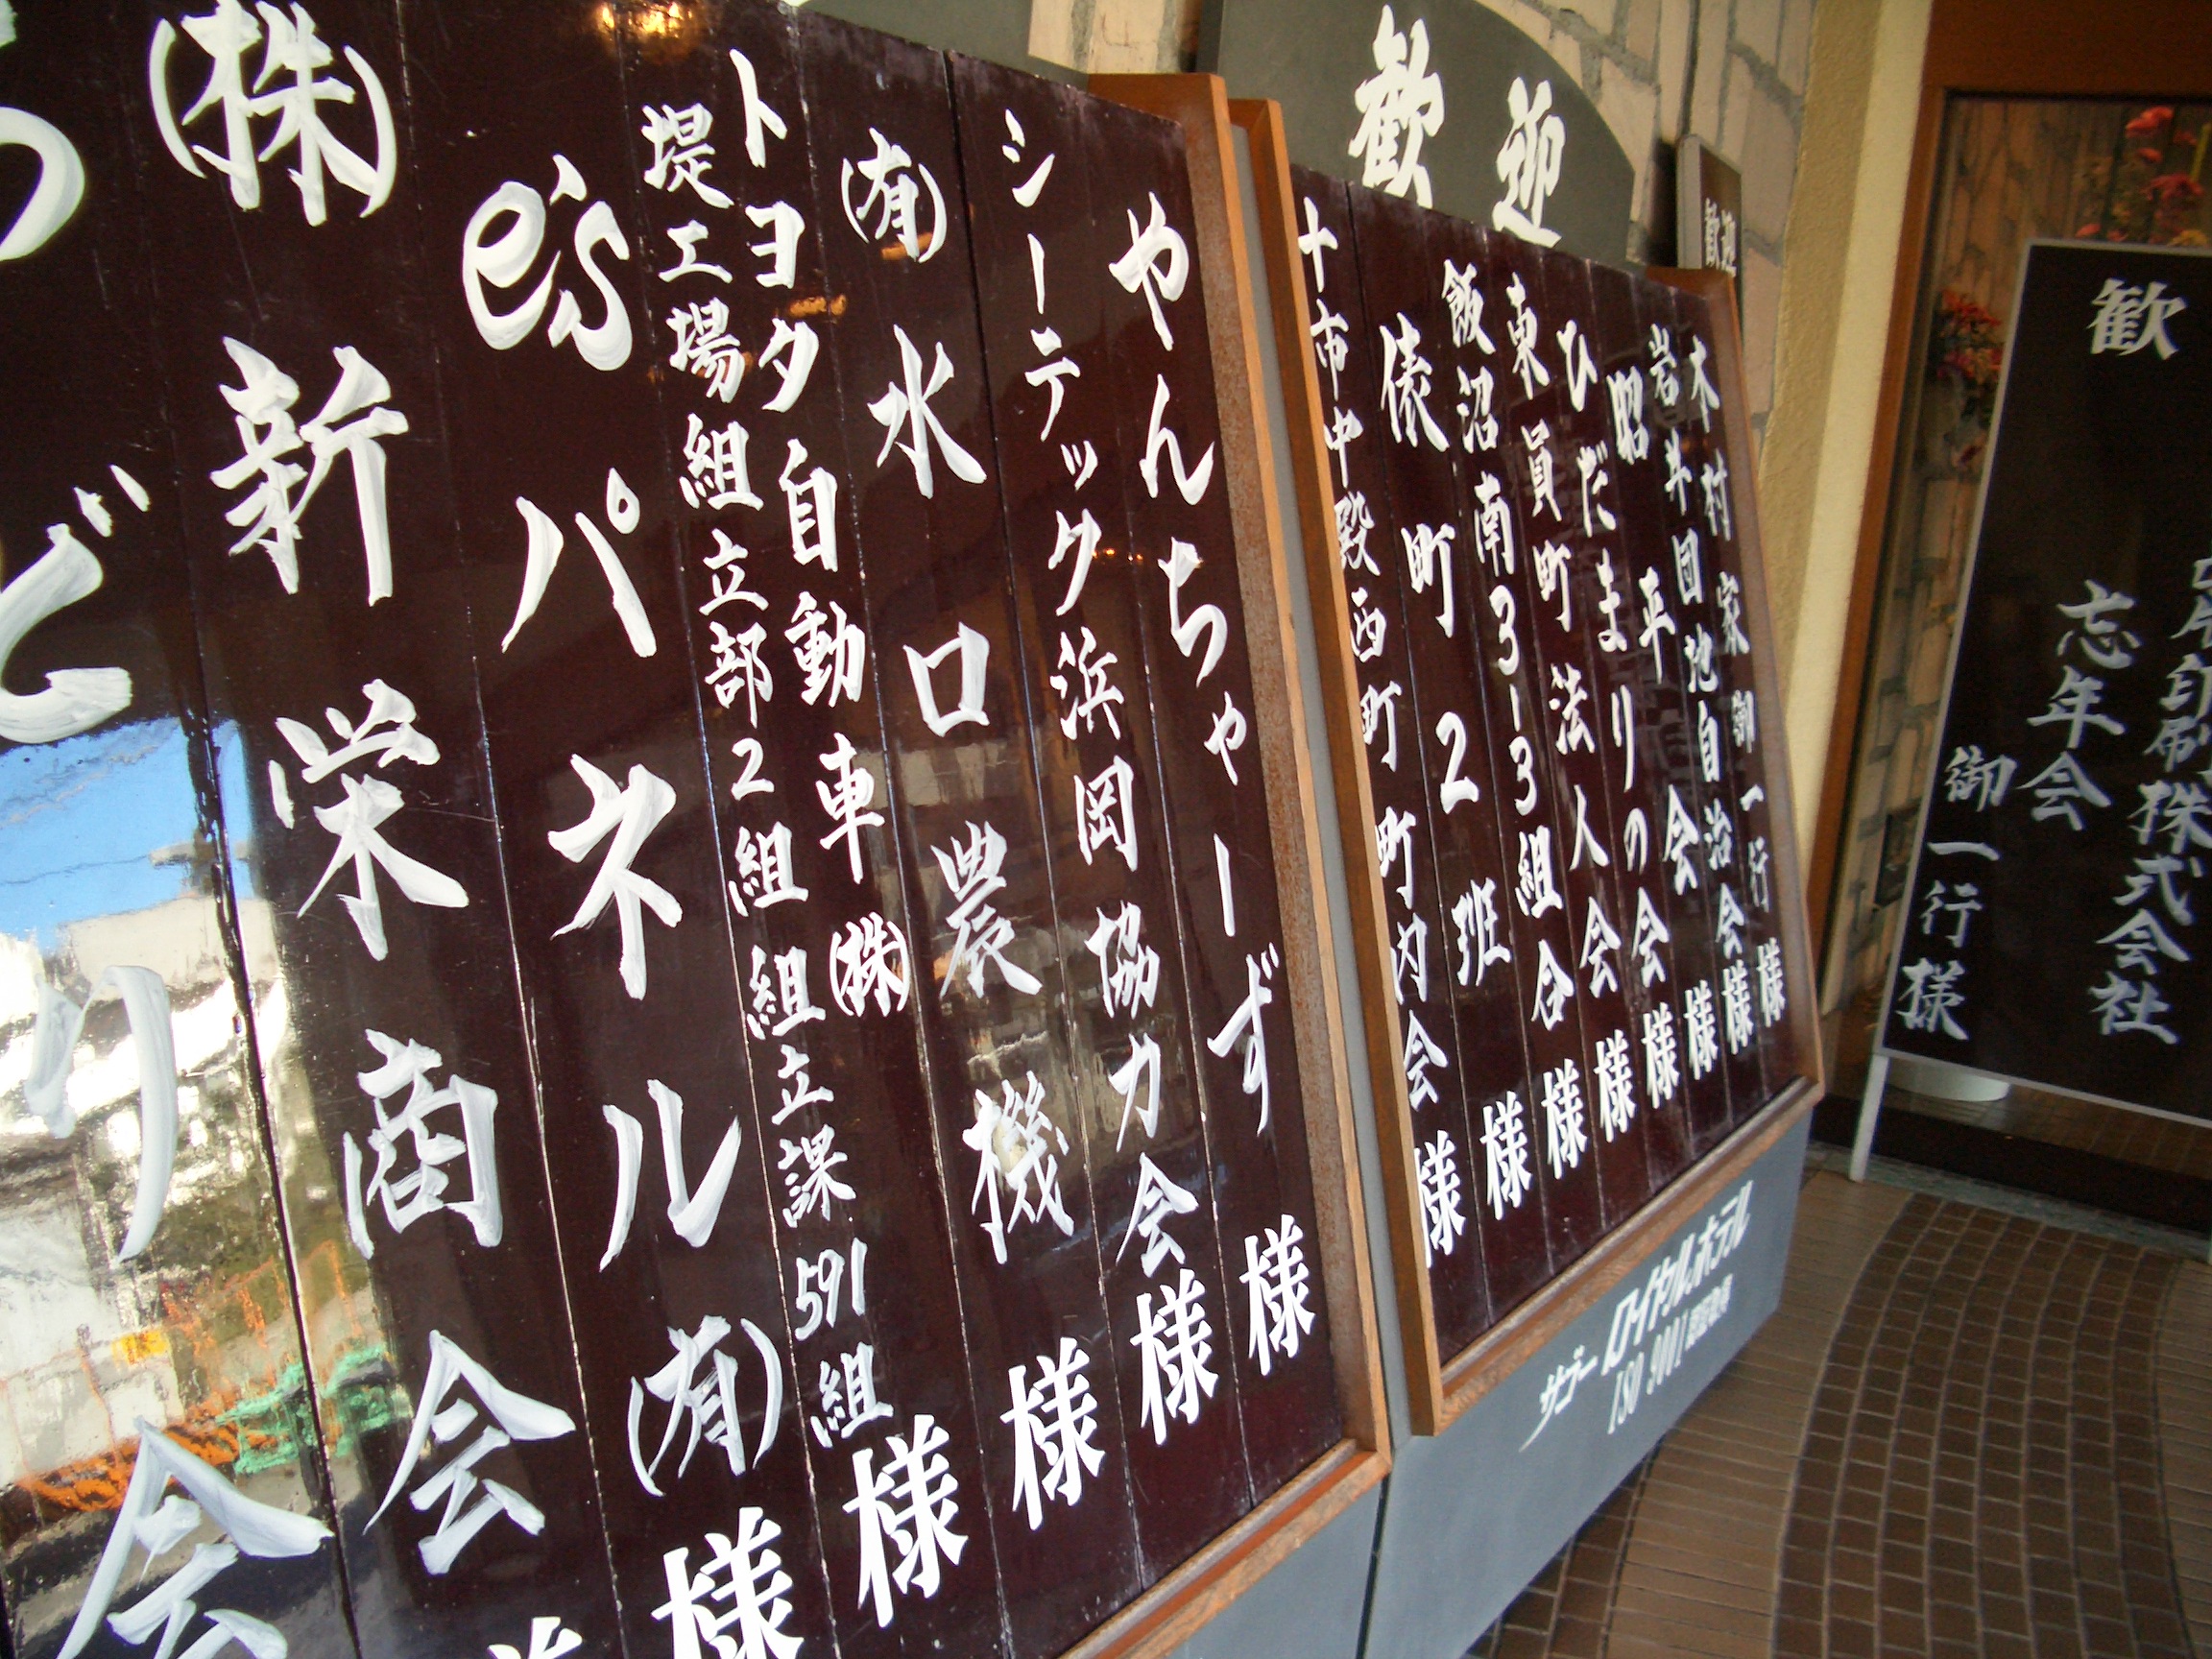 歓迎
歓迎
歓
印刷株式会社
忘年会
御一行様
木村家御一行様
岩井団地自治会様
昭平会様
ひだまりの会様
東員町法人会様
飯沼南3-3組合様
俵町2班様
十市中殿西町町内会様
やんちゃーず様
シーテック浜岡協力会様
(有)水口農機様
トヨタ自動車(株)
堤工場組立部2組組立課591組様
e'sパネル(有)様
(株)新栄商会
どり会
サゴーロイヤルホテル
ISO 9001認証取得